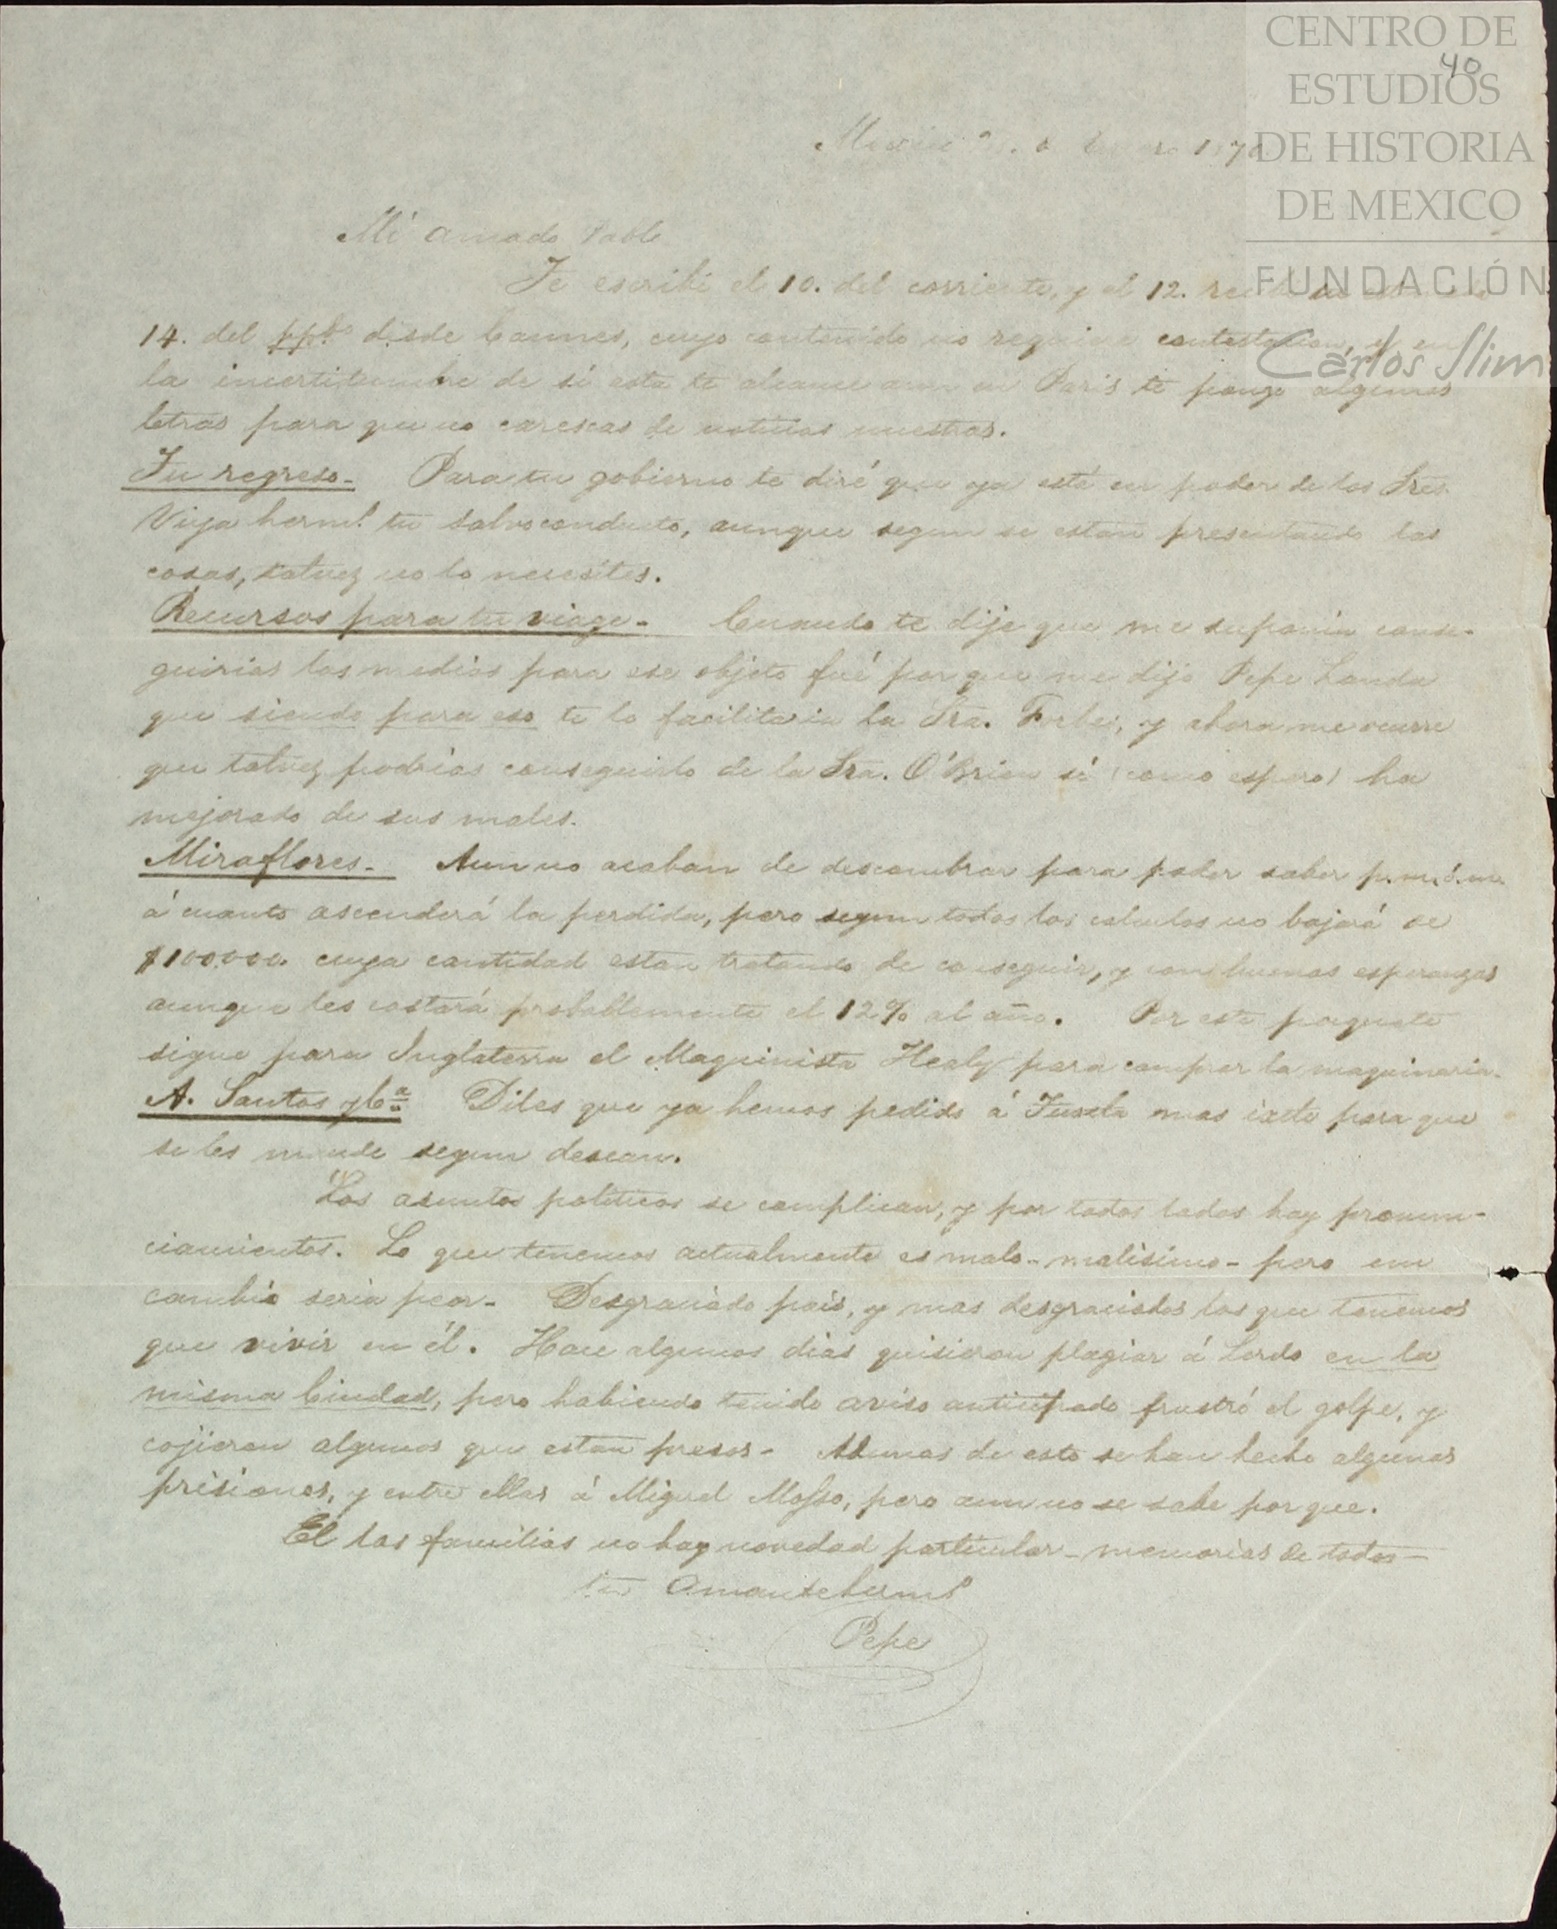 CENTRO DE
40
ESTUDIOS
DE HISTORIA
DE MEXICO
FUNDACIÓN
Carlos Slim
Mi amado Pablo
Te escribí el 10. del corriente, y el 12.
14. del ppdo desde Cannes, cuyo contenido no requiere contestacion, y en
la incertidumbre de si esta te alcance aun en Paris te pongo algunas
letras para que no carescas de noticias nuestras.
Tu regreso- Para tu gobierno te diré que ya está en poder de los Sres.
Viya herms. tu salvoconducto, aunque segun se estan presentando las
cosas, talvez no lo necesites.
Recursos para tu viage- Cuando te dije que me suponia conse-
guirias los medios para ese objeto fué por que me dijo Pepe Landa
que siendo para eso te lo facilitaria la Sra. Forbes, y ahora me ocurre
que talvez podrias conseguirlo de la Sra. O'Brien si (como espero) ha
mejorado de sus males.
Miraflores- Aun no acaban de descombrar para poder saber p.m.ó.m.
á cuanto ascenderá la perdida, pero segun todos los calculos no bajará de
$100.000. cuya cantidad estan tratando de conseguir, y con buenas esperanzas
aunque les costará probablemente el 12% al año. Por este paquete
sigue para Inglaterra el Maquinista Healy para comprar la maquinaria.
A. Santos y Ca. Diles que ya hemos pedido á Tuxtla mas ixtle para que
se les mande segun desean.
Los asuntos politicos se complican, y por todos lados hay pronun-
ciamientos. Lo que tenemos actualmente es malo- malisimo- pero un
cambio seria peor- Desgraciado pais, y mas desgraciados los que tenemos
que vivir en él. Hace algunos dias quisieron plagiar á Lerdo en la
misma Ciudad, pero habiendo tenido aviso anticipado frustró el golpe, y
cojieron algunos que estan presos- Ademas de esto se han hecho algunas
prisiones, y entre ellas á Miguel Mosso, pero aun no se sabe por que.
En las familias no hay novedad particular- memorias de todos-
tu amante hermo
Pepe